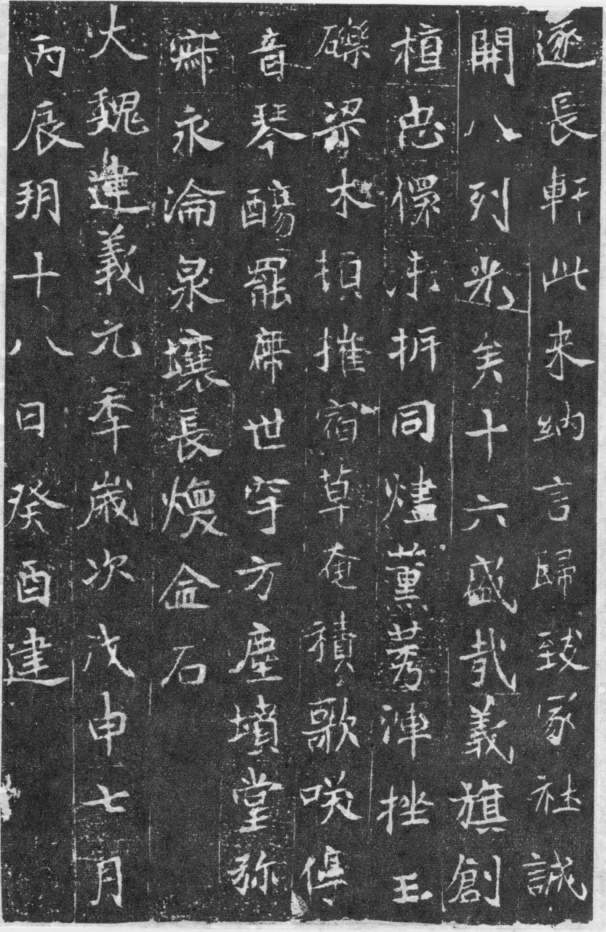 遂長軒此来納言歸致冢社誠
開八列光矣十六盛哉義旗創
植忠未拆同燼薰莠渾挫玉
礫梁木頓摧宿草奄積歌咲停
音琴觴罷席世穸方塵墳堂弥
寐永淪泉壤長煥金石
大魏建義元年歲次戊申七月
丙辰朔十八日癸酉建